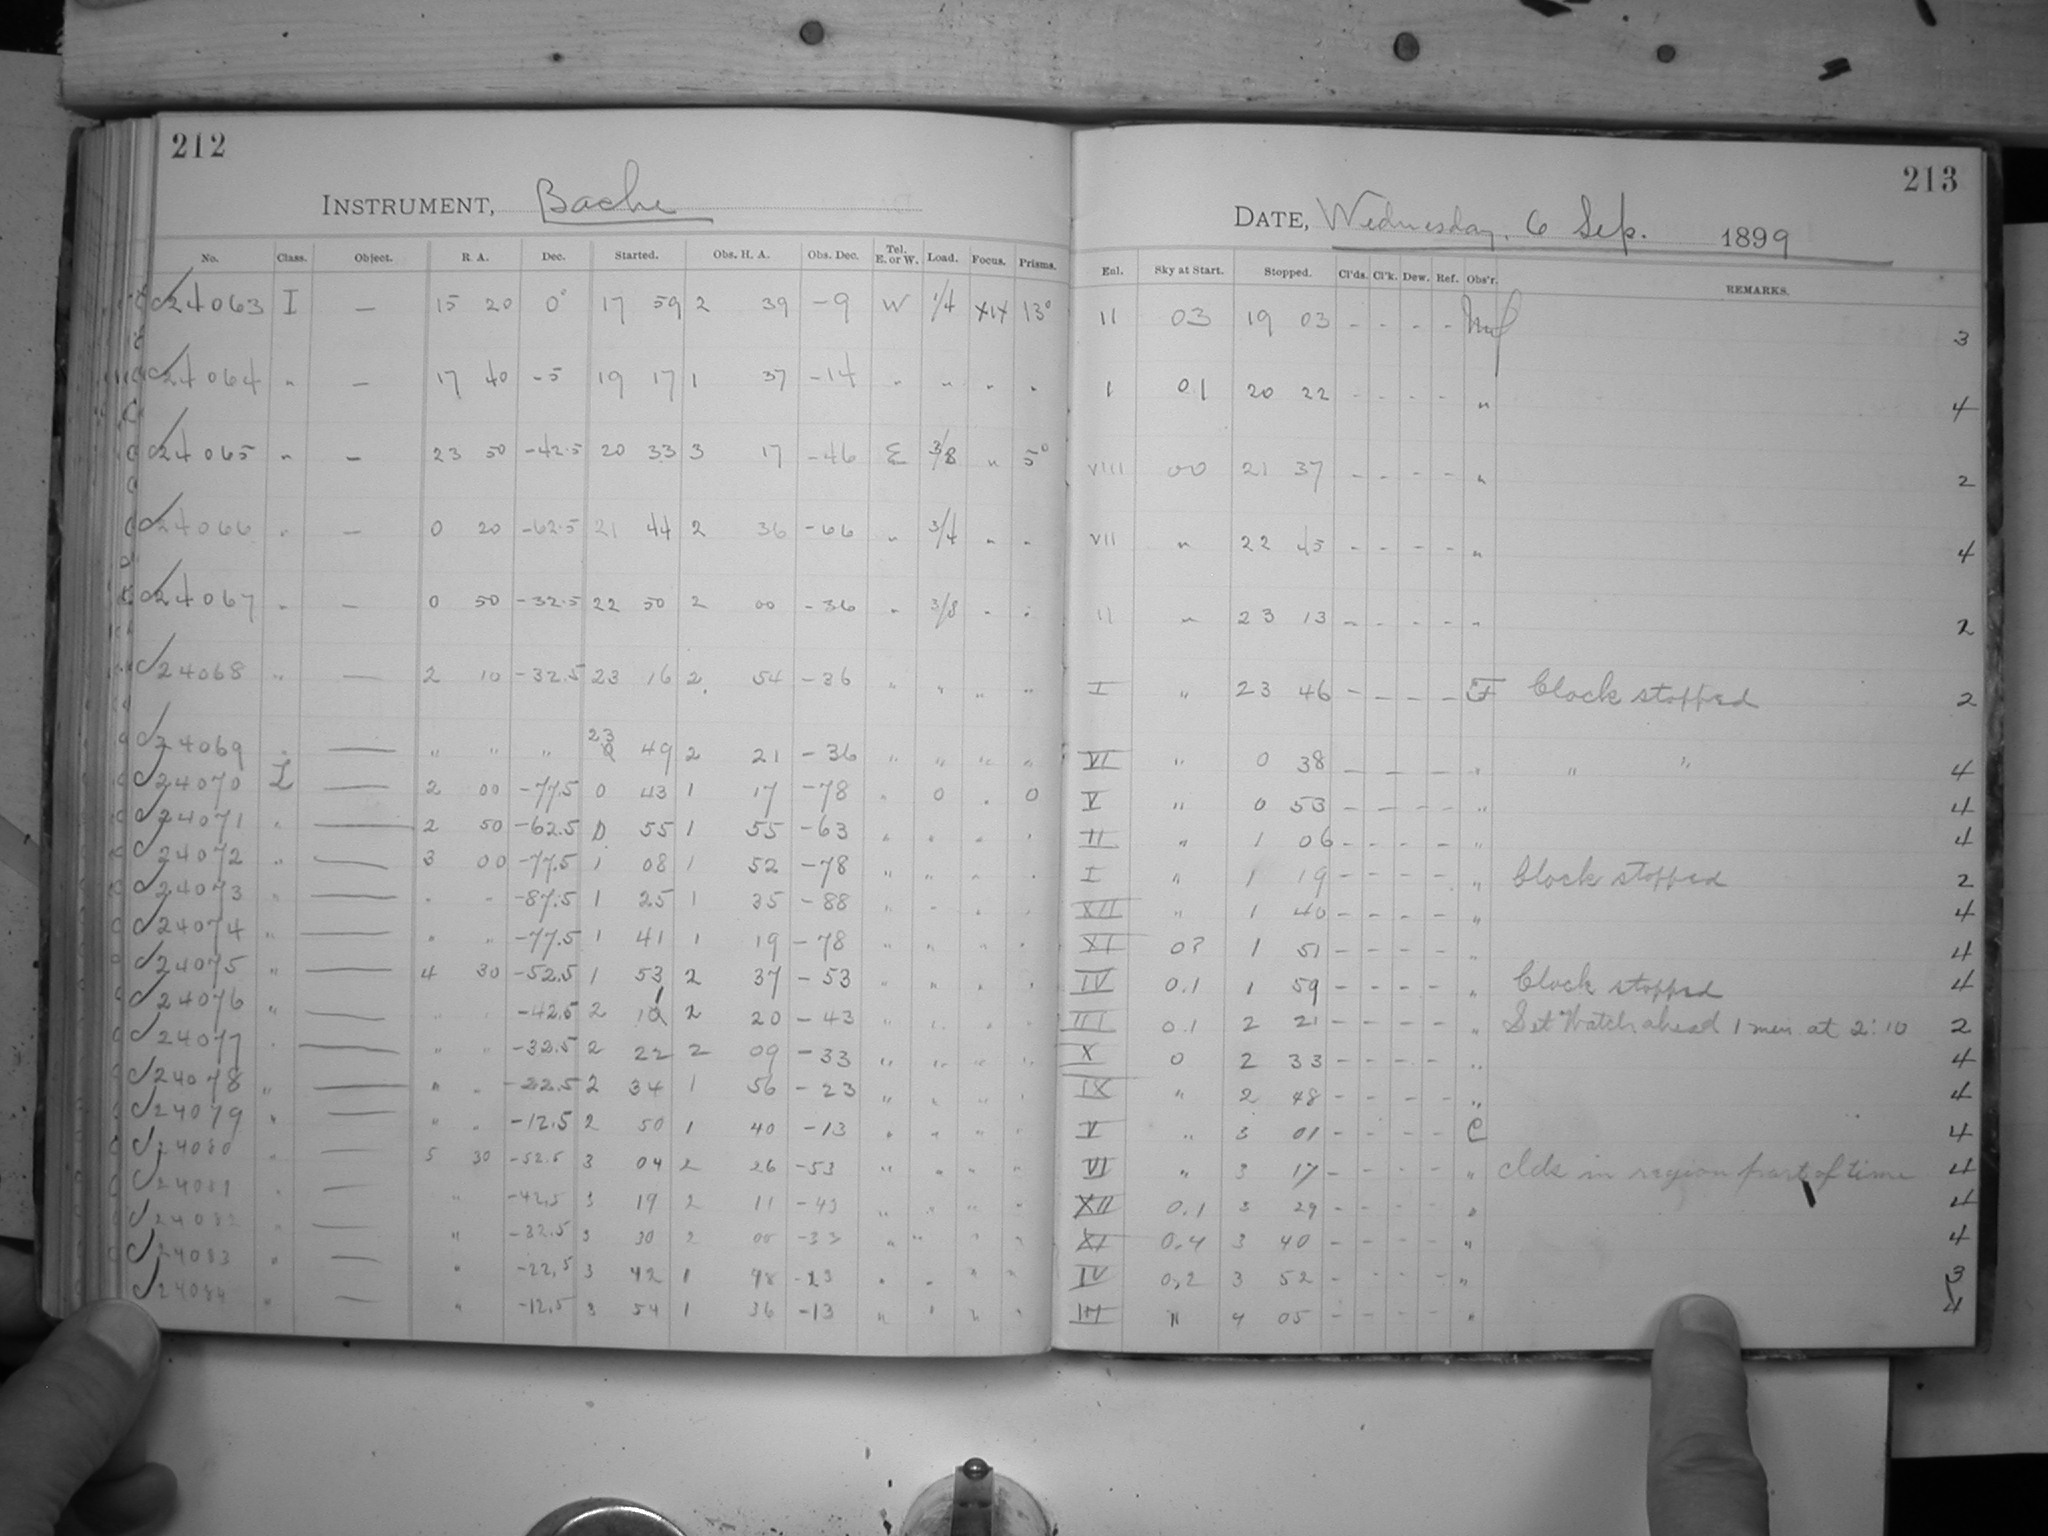 212
INSTRUMENT, Bache
No. Class. Object. R. A. Dec. Started. Obs. H. A. Obs. Dec. Tel. E. or W. Load. Focus. Prisms.
C24063 I — 15 20 0° 17 59 2 39 -9 W 1/4 XIX 13°
C24064 " — 17 40 -5 19 17 1 37 -14 " " " "
C24065 " — 23 50 -42.5 20 33 3 17 -46 E 3/8 " 5°
C24066 " — 0 20 -62.5 21 44 2 36 -66 " 3/4 " "
C24067 " — 0 50 -32.5 22 50 2 00 -36 " 3/8 " "
C24068 " — 2 10 -32.5 23 16 2 54 -36 " " " "
C24069 " — " " " 23 49 2 21 -36 " " " "
C24070 L — 2 00 -77.5 0 43 1 17 -78 " 0 " 0
C24071 " — 2 50 -62.5 0 55 1 55 -63 " " " "
C24072 " — 3 00 -77.5 1 08 1 52 -78 " " " "
C24073 " — " " -87.5 1 25 1 35 -88 " " " "
C24074 " — " " -77.5 1 41 1 19 -78 " " " "
C24075 " — 4 30 -52.5 1 53 2 37 -53 " " " "
C24076 " — " " -42.5 2 11 2 20 -43 " " " "
C24077 " — " " -32.5 2 22 2 09 -33 " " " "
C24078 " — " " -22.5 2 34 1 56 -23 " " " "
C24079 " — " " -12.5 2 50 1 40 -13 " " " "
C24080 " — 5 30 -52.5 3 04 2 26 -53 " " " "
C24081 " — " -42.5 3 19 2 11 -43 " " " "
C24082 " — " -32.5 3 30 2 00 -33 " " " "
C24083 " — " -22.5 3 42 1 48 -23 " " " "
C24084 " — " -12.5 3 54 1 36 -13 " " " "
213
DATE, Wednesday, 6 Sep. 1899
Eul. Sky at Start. Stopped. Cl'ds. Cl'k. Dew. Ref. Obs'r. REMARKS.
II 03 19 03 - - - - 3
I 01 20 22 - - - - " 4
VIII 00 21 37 - - - - " 2
VII " 22 45 - - - - " 4
II " 23 13 - - - - " 2
I " 23 46 - - - - F Clock stopped 2
VI " 0 38 - - - - " " " 4
V " 0 53 - - - - " 4
II " 1 06 - - - - " 4
I " 1 19 - - - - " Clock stopped 2
XII " 1 40 - - - - " 4
XI 0? 1 51 - - - - " 4
IV 0.1 1 59 - - - - " Clock stopped 4
III 0.1 2 21 - - - - " Set Watch ahead 1 min at 2:10 2
X 0 2 33 - - - - " 4
IX " 2 48 - - - - " 4
V " 3 01 - - - - C 4
VI " 3 17 - - - - " Clds in region part of time 4
XII 0.1 3 29 - - - - " 4
XI 0.4 3 40 - - - - " 4
IV 0.2 3 52 - - - - " 3
III " 4 05 - - - - " 4